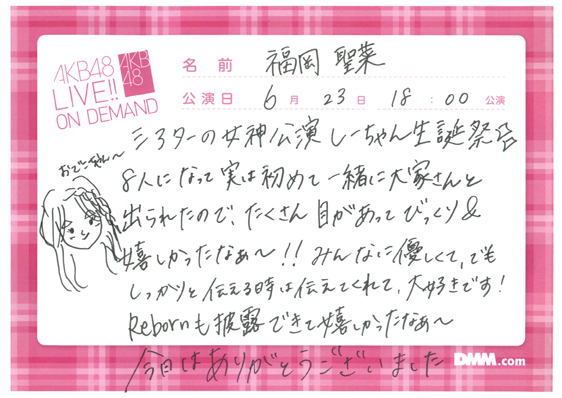 AKB48
LIVE!!
ON DEMAND
AKB
48
名前 福岡 聖菜
公演日 6月 23日 18:00 公演
シアターの女神公演 しーちゃん生誕祭
8人になって実は初めて一緒に大家さんと
出られたので、たくさん目があってびっくり&
嬉しかったなぁ〜!! みんなに優しくて、でも
しっかりと伝える時は伝えてくれて、大好きです!
Rebornも披露できて嬉しかったなぁ〜
今日はありがとうございました
おでこちゃん〜
DMM.com